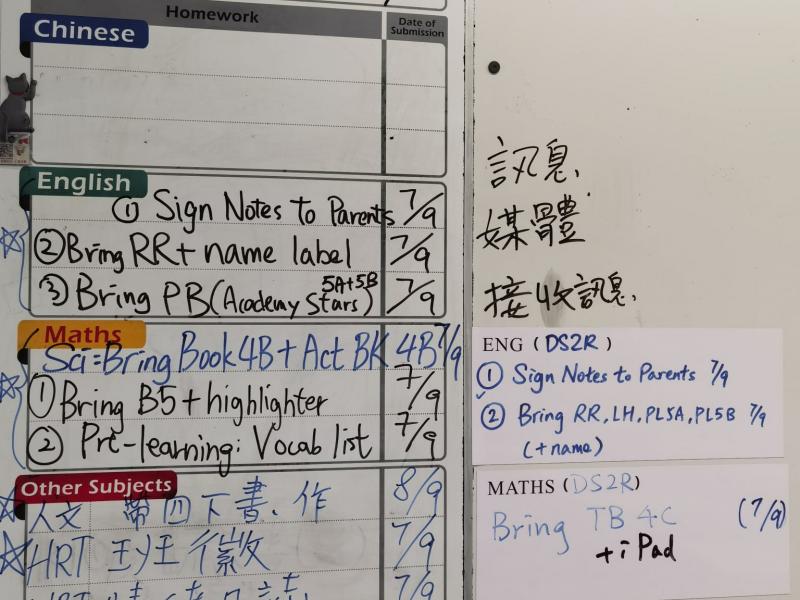 Homework
Date of Submission
Chinese
English
① Sign Notes to Parents 7/9
② Bring RR + name label 7/9
③ Bring PB (Academy Stars) 5A+5B 7/9
Maths
Sci = Bring Book 4B + Act BK 4B 7/9
① Bring B5 + highlighter 7/9
② Pre-learning: Vocab list 7/9
Other Subjects
人文 帶四下書、作 8/9
HRT 班徽 7/9
HRT 7/9
訊息
媒體
接收訊息
ENG (DS2R)
① Sign Notes to Parents 7/9
② Bring RR, LH, PL5A, PL5B 7/9
(+name)
MATHS (DS2R)
Bring TB 4C (7/9)
+ iPad